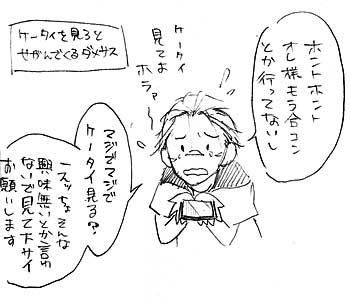 ケータイを見ろと
せがんでくるダメサス
ホントホント
オレ様モウ合コン
とか行ってないし
ケータイ
見てよ
ホラァ～
マジでマジで
ケータイ見る?
ちょそんな
興味無いとか言わ
ないで見て下サイ
お願いします